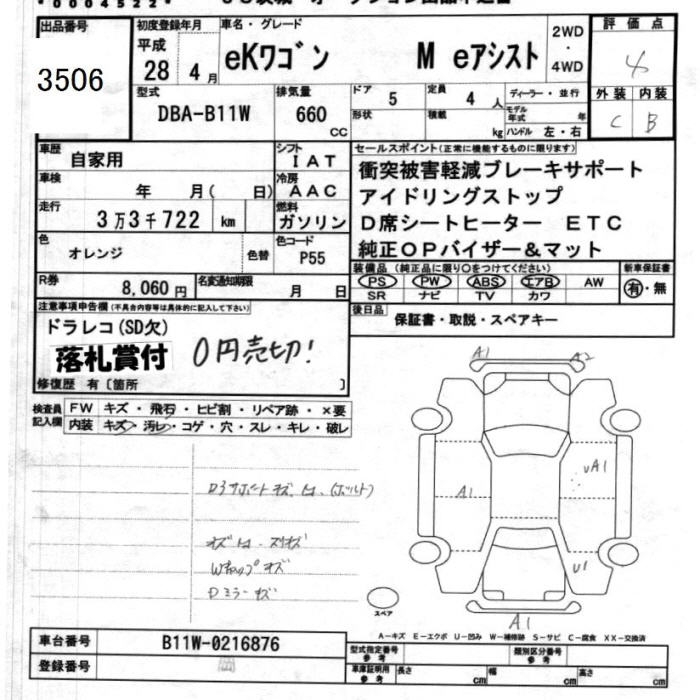 *0004522*
出品番号
3506
初度登録年月
平成
28 4 月
車名・グレード
eKワゴン M eアシスト
2WD
・
4WD
評価点
4
型式
DBA-B11W
排気量
660 CC
ドア 5
定員 4 人
ディーラー・並行
形状
積載 kg
モデル年式 年
ハンドル 左・右
外装 内装
C B
車歴 自家用
シフト IAT
車検 年 月( 日)
冷房 AAC
走行 3万3千722 km
燃料 ガソリン
色 オレンジ 色替
色コード P55
R券 8,060円
名変通知期限 月 日
セールスポイント(正常に機能するものに限ります)
衝突被害軽減ブレーキサポート
アイドリングストップ
D席シートヒーター ETC
純正OPバイザー&マット
装備品 (純正品に限り○をつけてください)
PS PW ABS エアB AW
SR ナビ TV カワ
新車保証書
有・無
後日品 保証書・取説・スペアキー
注意事項申告欄 (不具合内容等は具体的に記入して下さい)
ドラレコ(SD欠)
落札賞付 0円売切!
修復歴 有〔箇所 〕
検査員記入欄
FW キズ・飛石・ヒビ割・リペア跡・×要
内装 キズ・汚レ・コゲ・穴・スレ・キレ・破レ
Wキャップキズ
Dミラーキズ
A1 A2
A1
UA1
U1
A1
スペア
A-キズ E-エクボ U-凹み W-補修跡 S-サビ C-腐食 XX-交換済
車台番号 B11W-0216876
登録番号
型式指定番号 参考
類別区分番号 参考
車庫証明用 参考
長さ cm 幅 cm 高さ cm